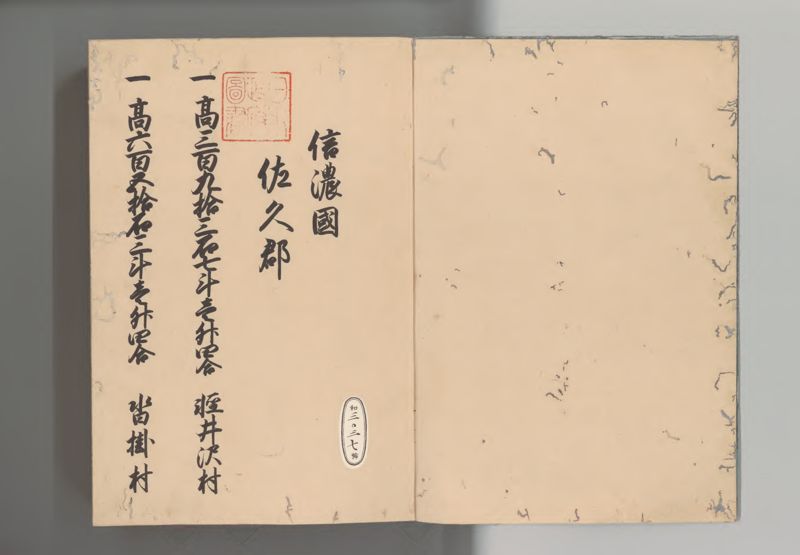 信濃國
佐久郡
一 高三百九拾三石七斗壱升四合 軽井沢村
一 高六百五拾石三斗壱升四合 沓掛村